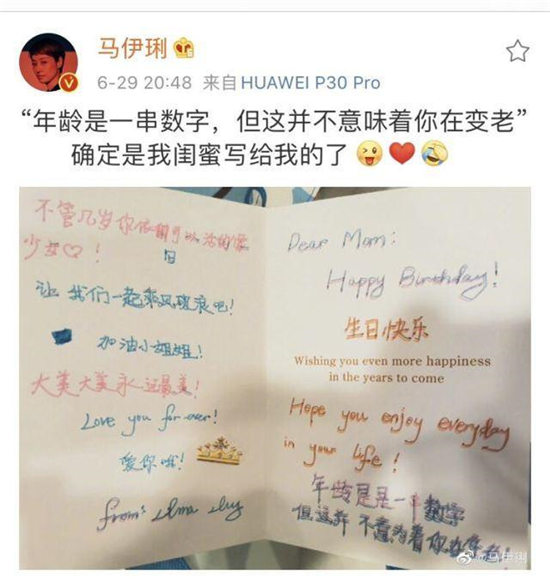 马伊琍
6-29 20:48 来自 HUAWEI P30 Pro
“年龄是一串数字，但这并不意味着你在变老”
确定是我闺蜜写给我的了
不管几岁你依旧可以活的像
少女♡！
让我们一起乘风破浪吧！
加油小姐姐！
大美大美永远最美！
Love you for ever!
爱你哦！
from:
Dear Mom:
Happy Birthday!
生日快乐
Wishing you even more happiness
in the years to come
Hope you enjoy everyday
in your life!
年龄是是一串数字
但这并不意味着你在变老
@马伊琍